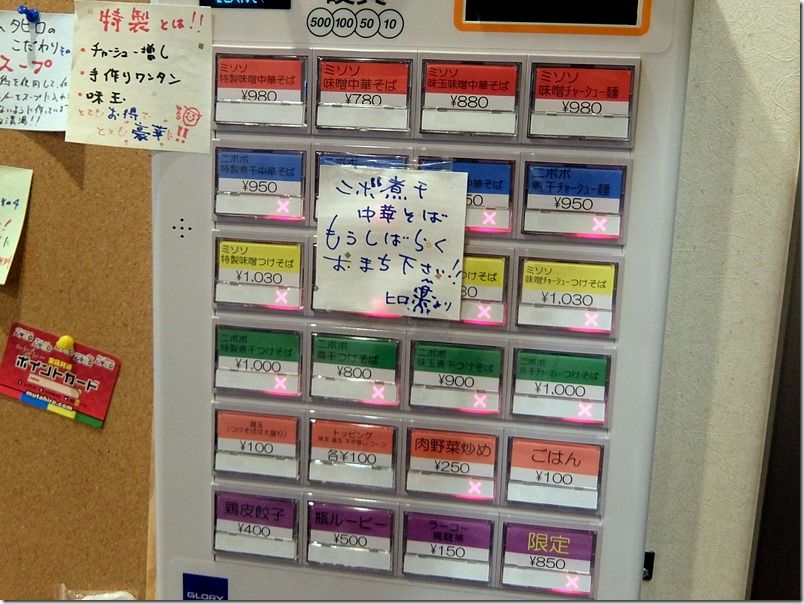 特製とは!!
・チャーシュー増し
・手作りワンタン
・味玉
とても お得で
とても 豪華に!!
タヒロの
こだわり
スープ
500 100 50 10
ミソソ
特製味噌中華そば
¥980
ミソソ
味噌中華そば
¥780
ミソソ
味玉味噌中華そば
¥880
ミソソ
味噌チャーシュー麺
¥980
ニボボ
特製煮干中華そば
¥950
ニボボ
煮干チャーシュー麺
¥950
ニボ煮干
中華そば
もうしばらく
おまち下さい!!
ヒロ
より
ミソソ
特製味噌つけそば
¥1,030
ミソソ
味噌チャーシューつけそば
¥1,030
ニボボ
特製煮干つけそば
¥1,000
ニボボ
煮干つけそば
¥800
ニボボ
味玉煮干つけそば
¥900
ニボボ
煮干チャーシューつけそば
¥1,000
(つけそばは大盛り)
¥100
トッピング
各¥100
肉野菜炒め
¥250
ごはん
¥100
鶏皮餃子
¥400
瓶ルービー
¥500
ラーコー
烏龍茶
¥150
限定
¥850
ポイントカード
mutahiro.com
GLORY